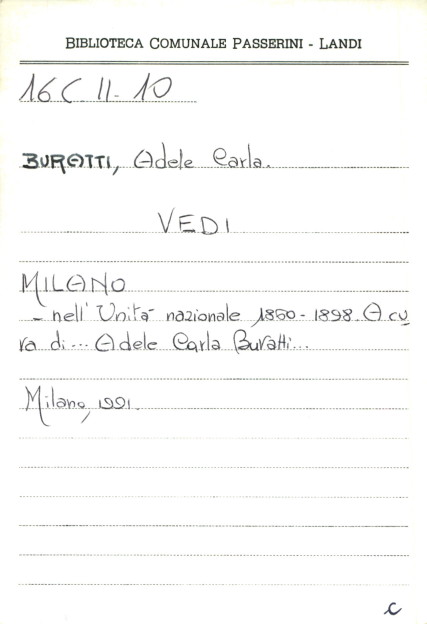 BIBLIOTECA COMUNALE PASSERINI - LANDI
16C II-10
BURATTI, Adele Carla.
VEDI
MILANO
- nell'Unità nazionale 1860-1898. A cu
ra di... Adele Carla Buratti...
Milano, 1991.
C